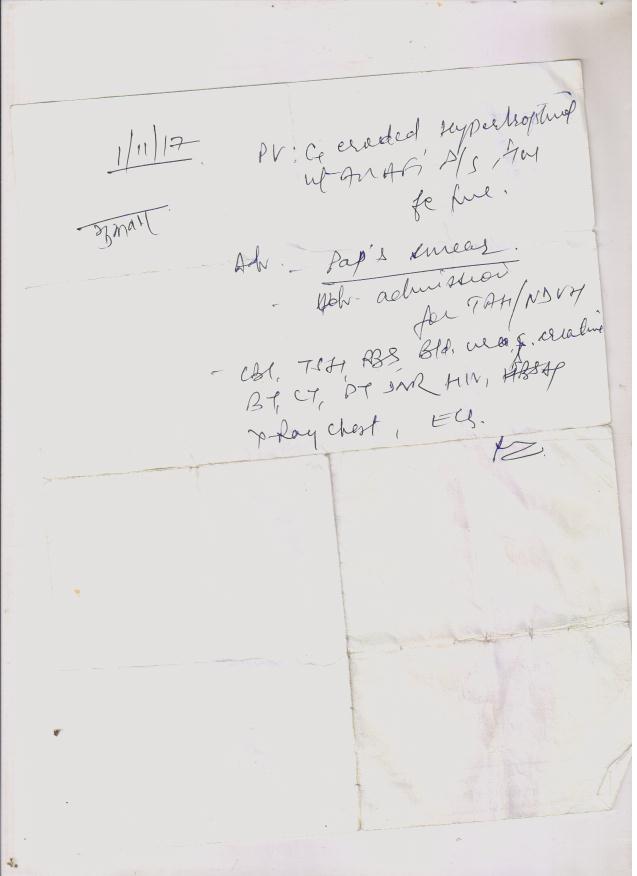 1/11/17
PV: Cx eroded hypertrophied
ut AV AF, N/S,
fx free.
Adv. - Pap's smear.
- Adv. admission
for TAH/NDVH
- CBC, TSH, RBS, Bld. urea, S. creatinine
BT, CT, PT INR HIV, HBSAg
X-Ray Chest, ECG.